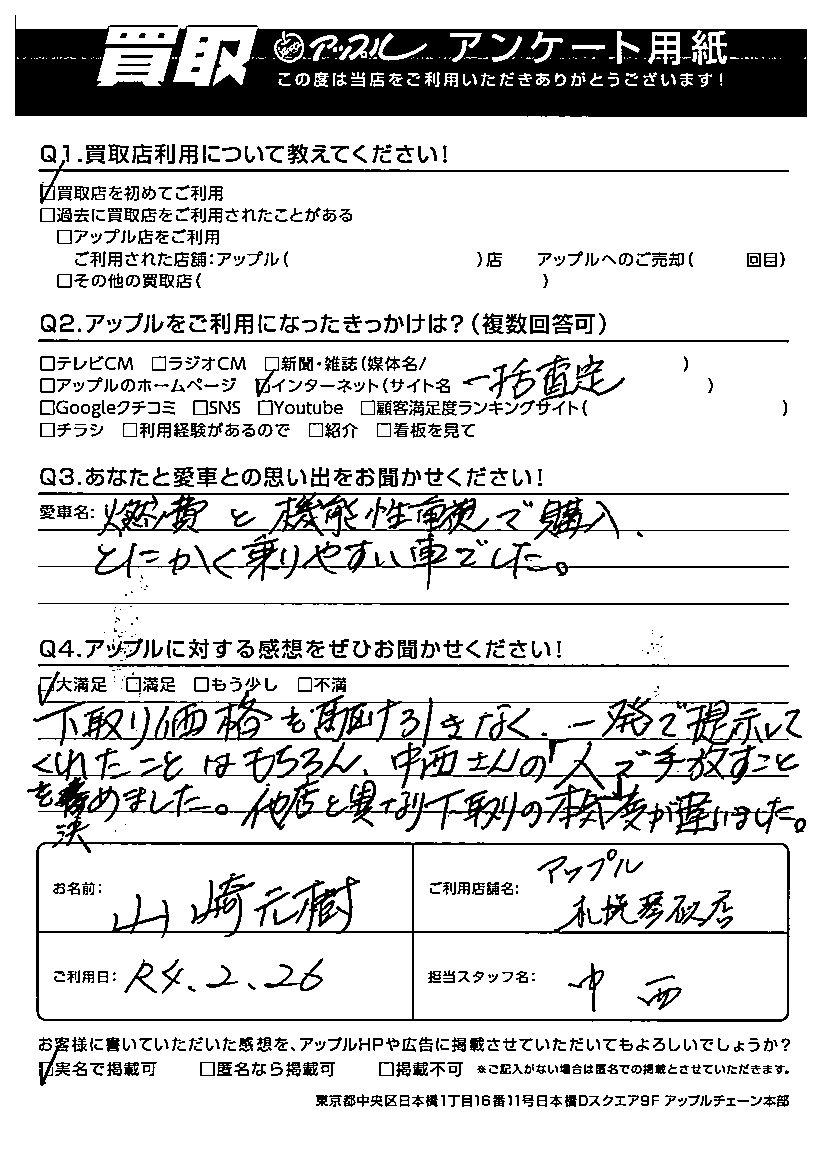 買取 アップル アンケート用紙
この度は当店をご利用いただきありがとうございます!
Q1.買取店利用について教えてください!
☑買取店を初めてご利用
□過去に買取店をご利用されたことがある
□アップル店をご利用
ご利用された店舗:アップル( )店 アップルへのご売却( 回目)
□その他の買取店( )
Q2.アップルをご利用になったきっかけは?(複数回答可)
□テレビCM □ラジオCM □新聞・雑誌(媒体名/ )
□アップルのホームページ ☑インターネット(サイト名 一括査定 )
□Googleクチコミ □SNS □Youtube □顧客満足度ランキングサイト( )
□チラシ □利用経験があるので □紹介 □看板を見て
Q3.あなたと愛車との思い出をお聞かせください!
愛車名: 燃費と機能性重視で購入、
とにかく乗りやすい車でした。
Q4.アップルに対する感想をぜひお聞かせください!
☑大満足 □満足 □もう少し □不満
下取り価格も駆け引きなく、一発で提示して
くれたことはもちろん、中西さんの「人」で手放すこと
を決めました。他店と異なり下取りの本気度が違いました。
お名前: 山崎元樹 ご利用店舗名: アップル
札幌琴似店
ご利用日: R4.2.26 担当スタッフ名: 中西
お客様に書いていただいた感想を、アップルHPや広告に掲載させていただいてもよろしいでしょうか?
☑実名で掲載可 □匿名なら掲載可 □掲載不可 ※ご記入がない場合は匿名での掲載とさせていただきます。
東京都中央区日本橋1丁目16番11号日本橋Dスクエア9F アップルチェーン本部